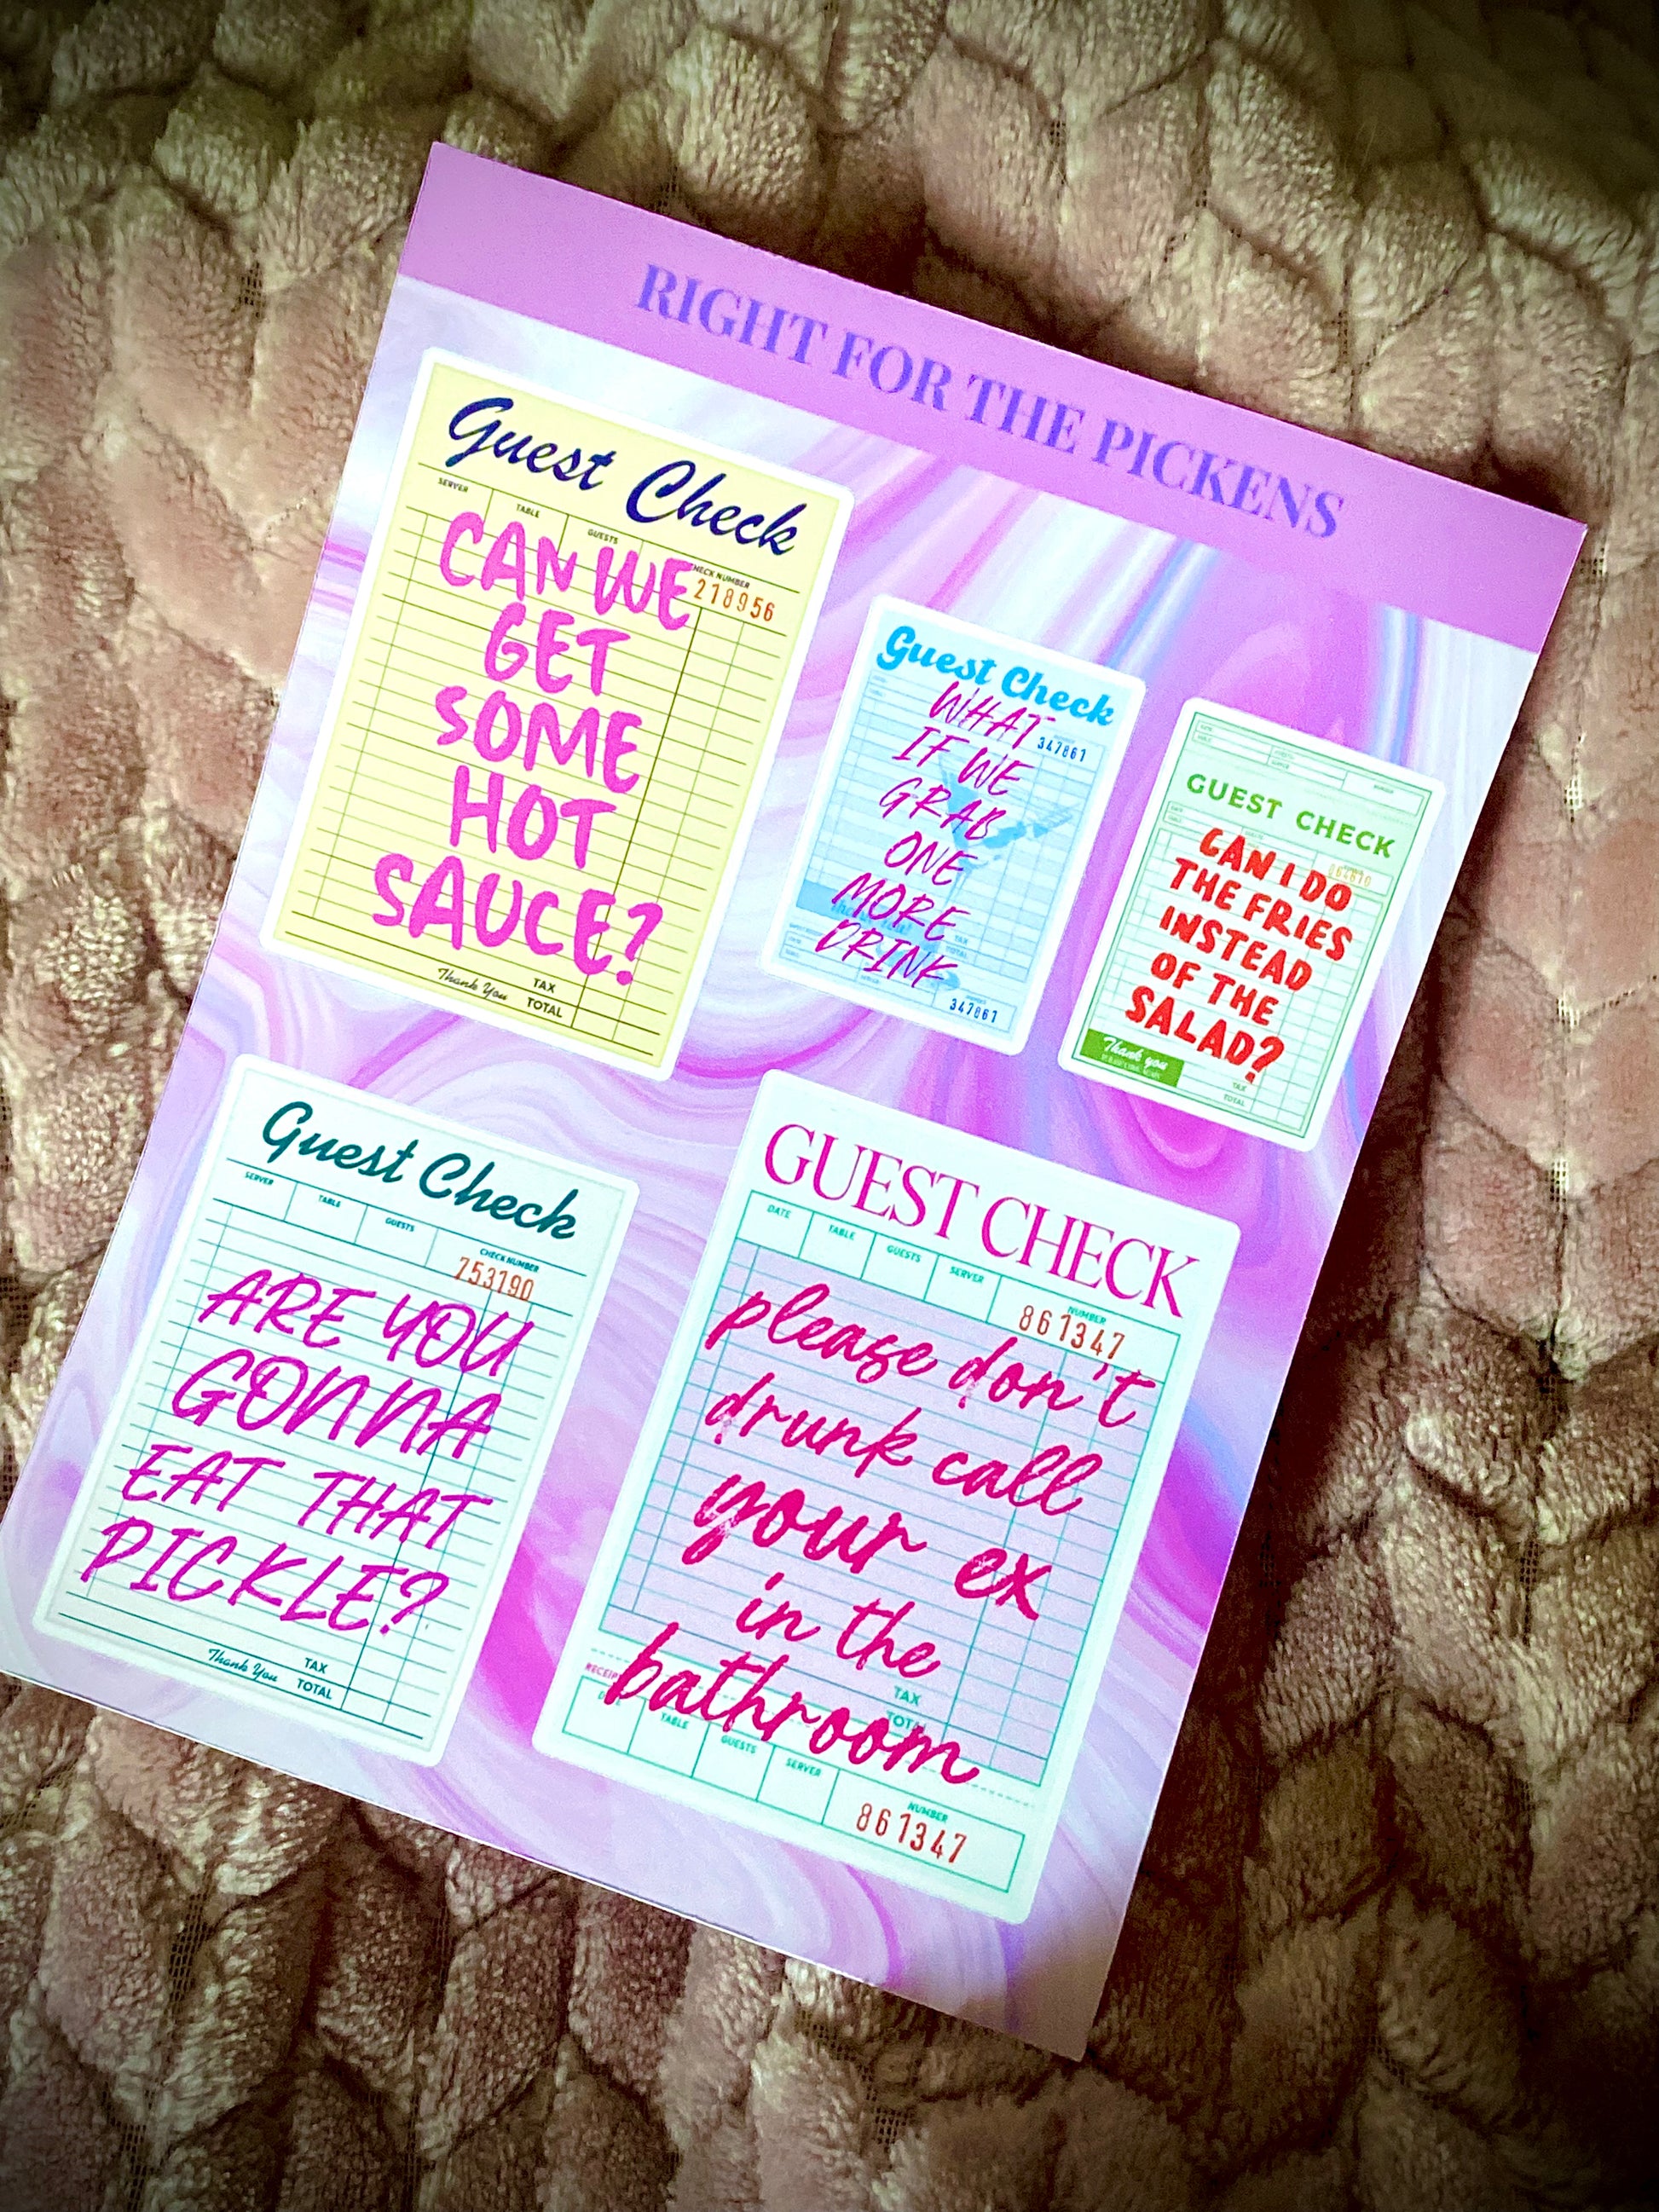 RIGHT FOR THE PICKENS
Guest Check
SERVER TABLE GUESTS CHECK NUMBER
218956
CAN WE
GET
SOME
HOT
SAUCE?
Thank You TAX
TOTAL
Guest Check
347861
WHAT
IF WE
GRAB
ONE
MORE
DRINK
TAX
TOTAL
347861
GUEST CHECK
CAN I DO
THE FRIES
INSTEAD
OF THE
SALAD?
Thank you
TAX
TOTAL
Guest Check
SERVER TABLE GUESTS CHECK NUMBER
753190
ARE YOU
GONNA
EAT THAT
PICKLE?
Thank You TAX
TOTAL
GUEST CHECK
DATE TABLE GUESTS SERVER NUMBER
861347
please don't
drunk call
your ex
in the
bathroom
TAX
TOTAL
TABLE GUESTS SERVER NUMBER
861347